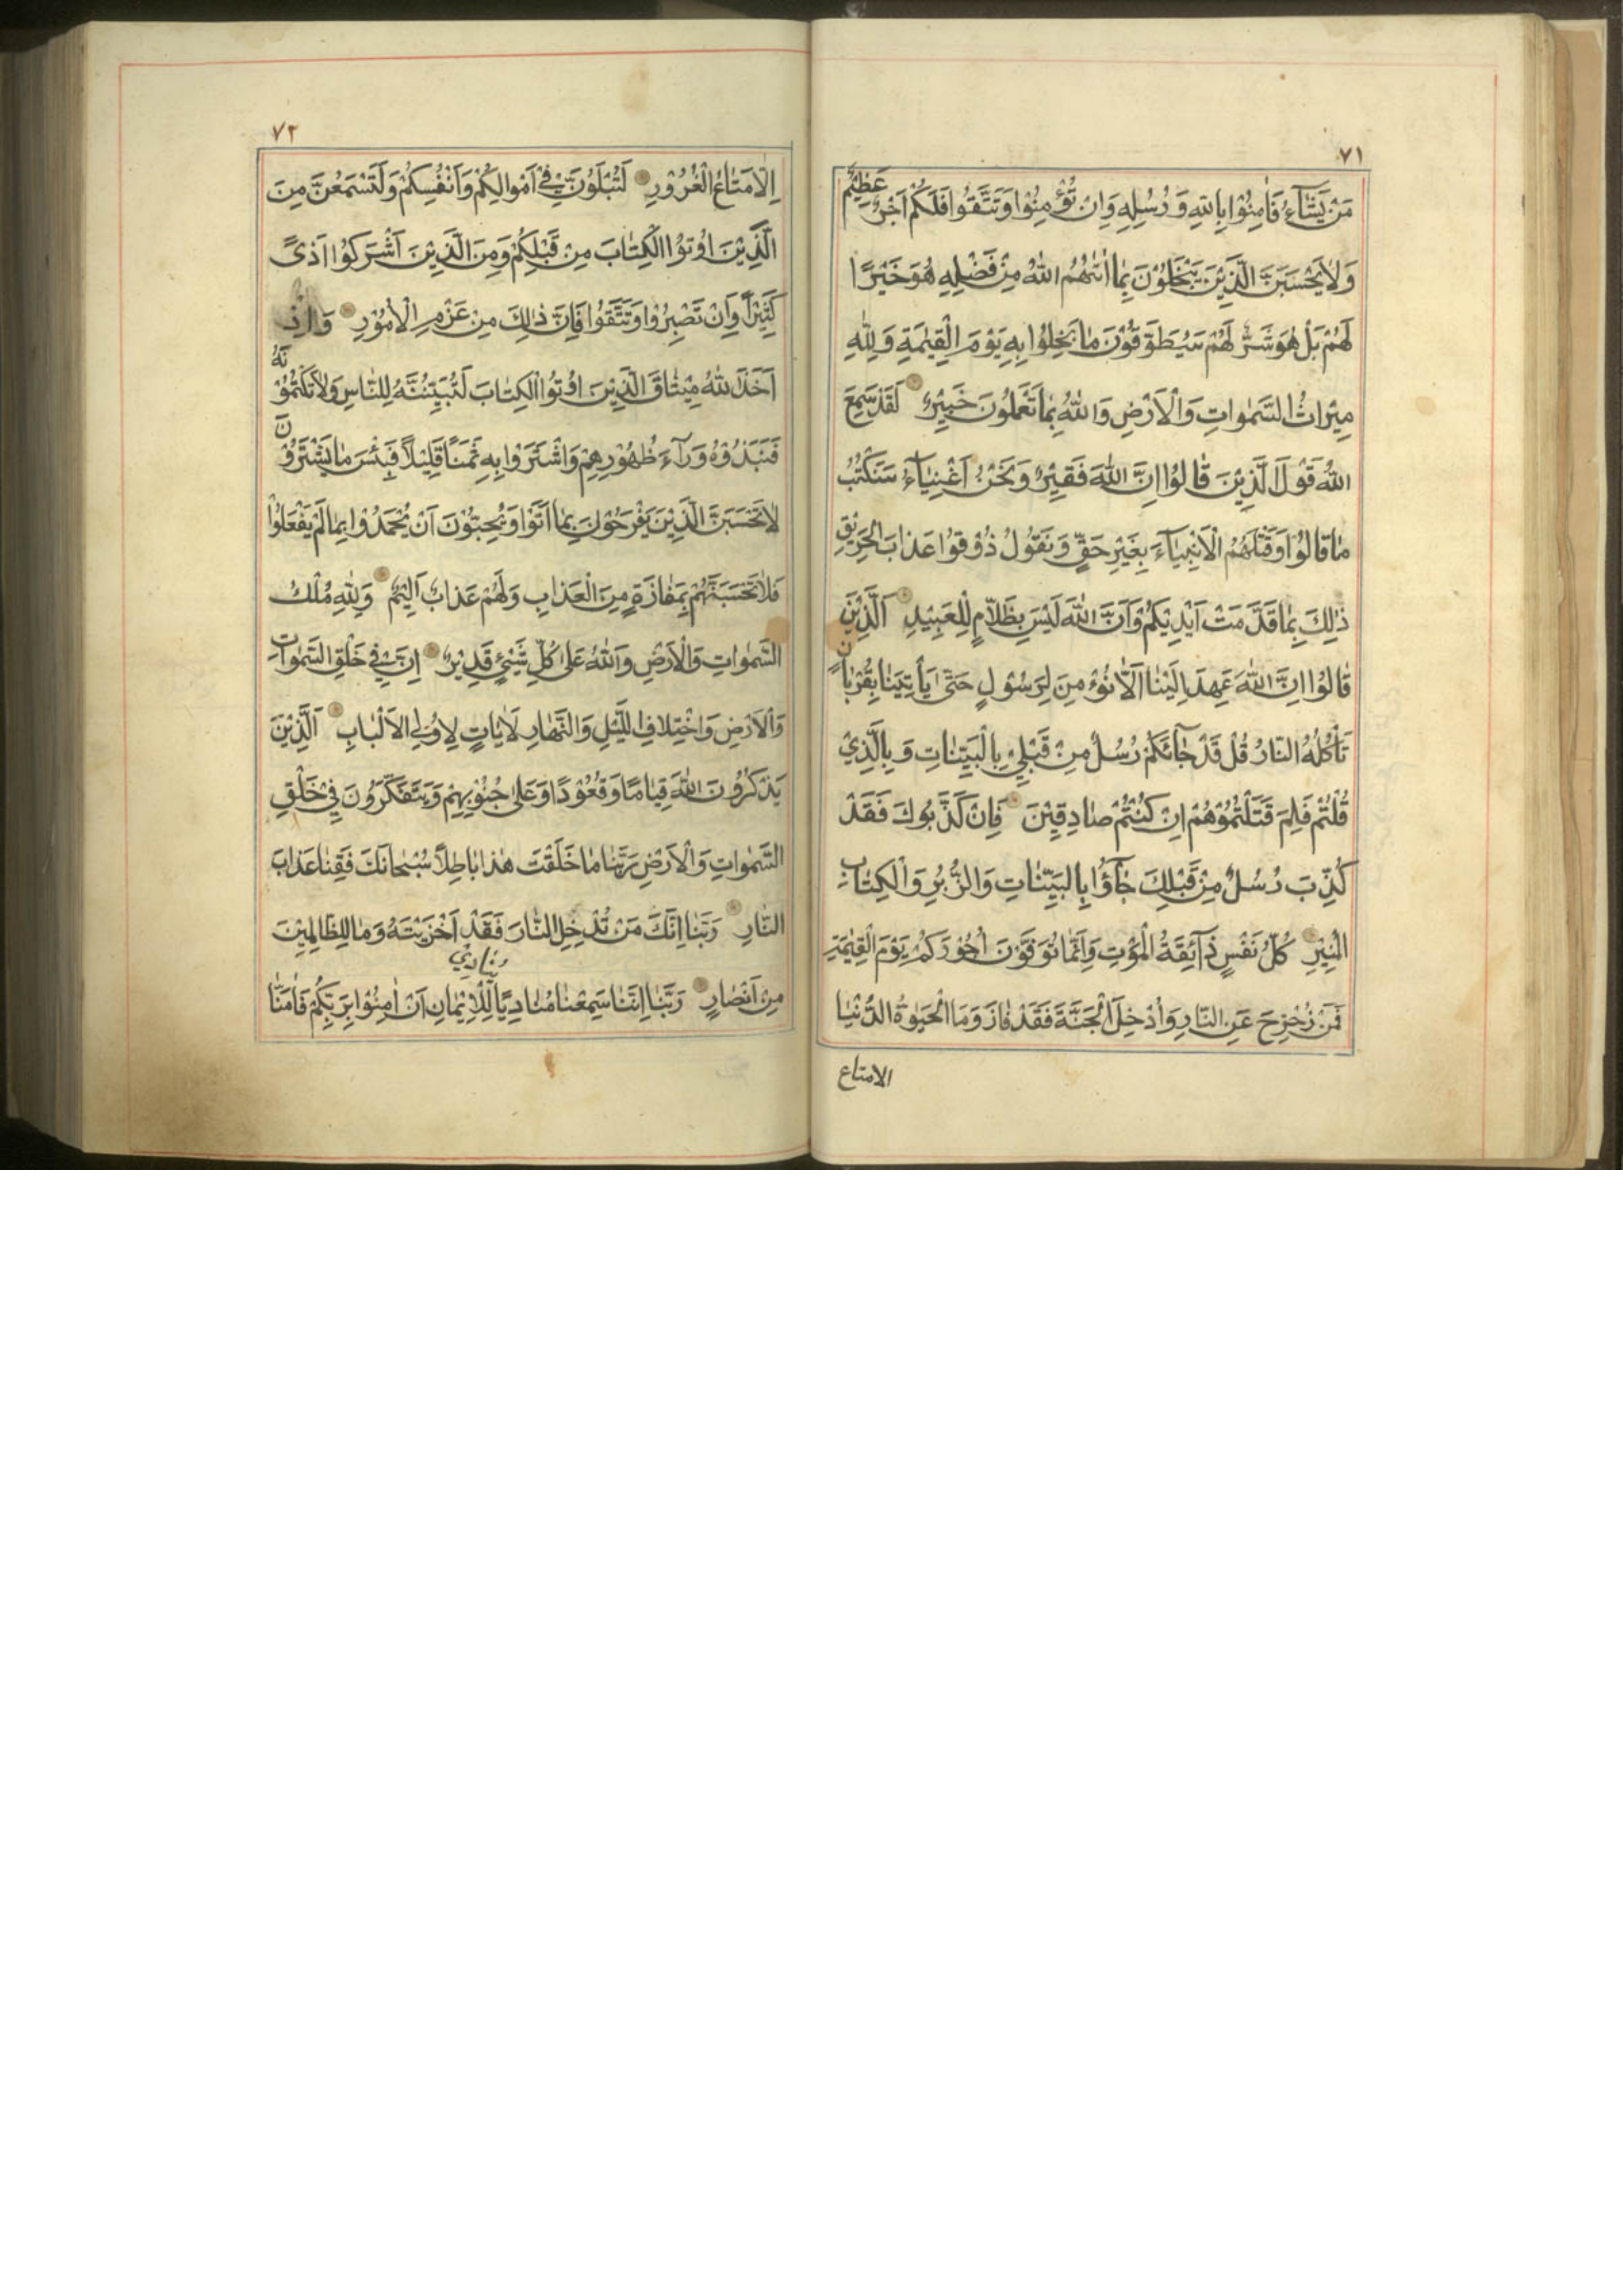 ٧١
مَنْ يَشَآءُ فَاٰمِنُوْا بِاللّٰهِ وَ رُسُلِهِ وَاِنْ تُؤْمِنُوْا وَتَتَّقُوْا فَلَكُمْ اَجْرٌ عَظِيْمٌ
وَلَا يَحْسَبَنَّ الَّذِيْنَ يَبْخَلُوْنَ بِمٰا اٰتٰهُمُ اللّٰهُ مِنْ فَضْلِهِ هُوَ خَيْرًا
لَهُمْ بَلْ هُوَ شَرٌّ لَهُمْ سَيُطَوَّقُوْنَ مٰا بَخِلُوْا بِهِ يَوْمَ الْقِيٰمَةِ وَلِلّٰهِ
مِيْرَاثُ السَّمٰوَاتِ وَالْاَرْضِ وَاللّٰهُ بِمٰا تَعْمَلُوْنَ خَبِيْرٌ لَقَدْ سَمِعَ
اللّٰهُ قَوْلَ الَّذِيْنَ قٰالُوْا اِنَّ اللّٰهَ فَقِيْرٌ وَنَحْنُ اَغْنِيٰآءُ سَنَكْتُبُ
مٰا قٰالُوْا وَقَتْلَهُمُ الْاَنْبِيٰآءَ بِغَيْرِ حَقٍّ وَنَقُوْلُ ذُوْقُوْا عَذٰابَ الْحَرِيْقِ
ذٰلِكَ بِمٰا قَدَّمَتْ اَيْدِيْكُمْ وَاَنَّ اللّٰهَ لَيْسَ بِظَلّٰامٍ لِلْعَبِيْدِ اَلَّذِيْنَ
قٰالُوْا اِنَّ اللّٰهَ عَهِدَ اِلَيْنٰا اَلّٰا نُؤْمِنَ لِرَسُوْلٍ حَتّٰى يَأْتِيَنٰا بِقُرْبٰانٍ
تَأْكُلُهُ النّٰارُ قُلْ قَدْ جٰآئَكُمْ رُسُلٌ مِنْ قَبْلِيْ بِالْبَيِّنٰاتِ وَبِالَّذِيْ
قُلْتُمْ فَلِمَ قَتَلْتُمُوْهُمْ اِنْ كُنْتُمْ صٰادِقِيْنَ فَاِنْ كَذَّبُوكَ فَقَدْ
كُذِّبَ رُسُلٌ مِنْ قَبْلِكَ جٰآؤُا بِالْبَيِّنٰاتِ وَالزُّبُرِ وَالْكِتٰابِ
الْمُنِيْرِ كُلُّ نَفْسٍ ذٰآئِقَةُ الْمَوْتِ وَاِنَّمٰا تُوَفَّوْنَ اُجُوْرَكُمْ يَوْمَ الْقِيٰمَةِ
فَمَنْ زُحْزِحَ عَنِ النّٰارِ وَاُدْخِلَ الْجَنَّةَ فَقَدْ فٰازَ وَمَا الْحَيٰوةُ الدُّنْيٰا
الامتاع
٧٢
اِلّٰا مَتٰاعُ الْغُرُوْرِ لَتُبْلَوُنَّ فِيْ اَمْوٰالِكُمْ وَاَنْفُسِكُمْ وَلَتَسْمَعُنَّ مِنَ
الَّذِيْنَ اُوْتُوْا الْكِتٰابَ مِنْ قَبْلِكُمْ وَمِنَ الَّذِيْنَ اَشْرَكُوْا اَذىً
كَثِيْرًا وَاِنْ تَصْبِرُوْا وَتَتَّقُوْا فَاِنَّ ذٰلِكَ مِنْ عَزْمِ الْاُمُوْرِ وَاِذْ
اَخَذَ اللّٰهُ مِيْثٰاقَ الَّذِيْنَ اُوْتُوْا الْكِتٰابَ لَتُبَيِّنُنَّهُ لِلنّٰاسِ وَلَا تَكْتُمُوْنَهُ
فَنَبَذُوْهُ وَرٰآءَ ظُهُوْرِهِمْ وَاشْتَرَوْا بِهِ ثَمَنًا قَلِيْلًا فَبِئْسَ مٰا يَشْتَرُوْنَ
لٰا تَحْسَبَنَّ الَّذِيْنَ يَفْرَحُوْنَ بِمٰا اَتَوْا وَيُحِبُّوْنَ اَنْ يُحْمَدُوْا بِمٰا لَمْ يَفْعَلُوْا
فَلٰا تَحْسَبَنَّهُمْ بِمَفٰازَةٍ مِنَ الْعَذٰابِ وَلَهُمْ عَذٰابٌ اَلِيْمٌ وَلِلّٰهِ مُلْكُ
السَّمٰوٰاتِ وَالْاَرْضِ وَاللّٰهُ عَلٰى كُلِّ شَيْئٍ قَدِيْرٌ اِنَّ فِيْ خَلْقِ السَّمٰوٰاتِ
وَالْاَرْضِ وَاخْتِلٰافِ اللَّيْلِ وَالنَّهٰارِ لَاٰيٰاتٍ لِاُولِي الْاَلْبٰابِ اَلَّذِيْنَ
يَذْكُرُوْنَ اللّٰهَ قِيٰامًا وَقُعُوْدًا وَعَلٰى جُنُوْبِهِمْ وَيَتَفَكَّرُوْنَ فِيْ خَلْقِ
السَّمٰوٰاتِ وَالْاَرْضِ رَبَّنٰا مٰا خَلَقْتَ هٰذٰا بٰاطِلًا سُبْحٰانَكَ فَقِنٰا عَذٰابَ
النّٰارِ رَبَّنٰا اِنَّكَ مَنْ تُدْخِلِ النّٰارَ فَقَدْ اَخْزَيْتَهُ وَمٰا لِلظّٰالِمِيْنَ
مِنْ اَنْصٰارٍ رَبَّنٰا اِنَّنٰا سَمِعْنٰا مُنٰادِيًا يُنٰادِيْ لِلْاِيْمٰانِ اَنْ اٰمِنُوْا بِرَبِّكُمْ فَاٰمَنّٰا